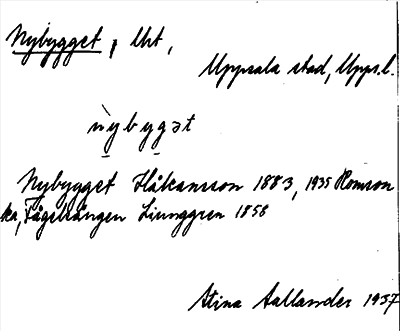 Nybygget, Urt,
Uppsala stad, Upps.l.
nybygət
Nybygget Håkansson 1883, 1935 Homson
ka, Fågelsången Ljunggren 1858
Stina Aallander 1937